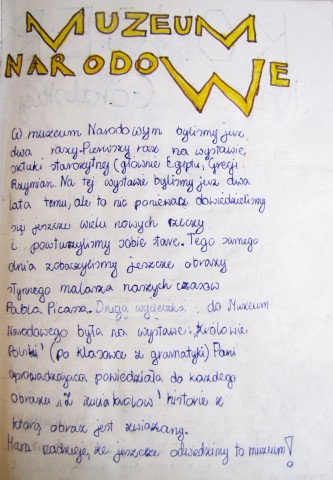 MUZEUM
NARODOWE
W muzeum Narodowym byliśmy już
dwa razy. Pierwszy raz na wystawie
sztuki starożytnej (głównie Egiptu, Grecji
Rzymian. Na tej wystawie byliśmy już dwa
lata temu, ale to nic ponieważ dowiedzieliśmy
się jeszcze wielu nowych rzeczy
i powtórzyliśmy sobie stare. Tego samego
dnia zobaczyliśmy jeszcze obrazy
słynnego malarza naszych czasów
Pabla Picassa. Druga wycieczka do Muzeum
Narodowego była na wystawie „Królowie
Polski" (po klasówce z gramatyki) Pani
oprowadzająca powiedziała do każdego
obrazu „z królów" historie z
którą obraz jest związany.
Mam nadzieję, że jeszcze odwiedzimy to muzeum!